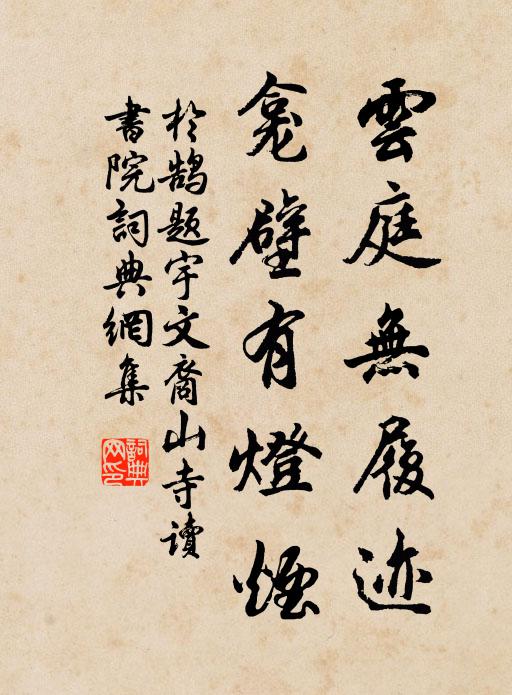 雲庭無履迹
龕壁有燈煙
於鵠题宇文裔山寺讀
書院詞典網集
詞典网印